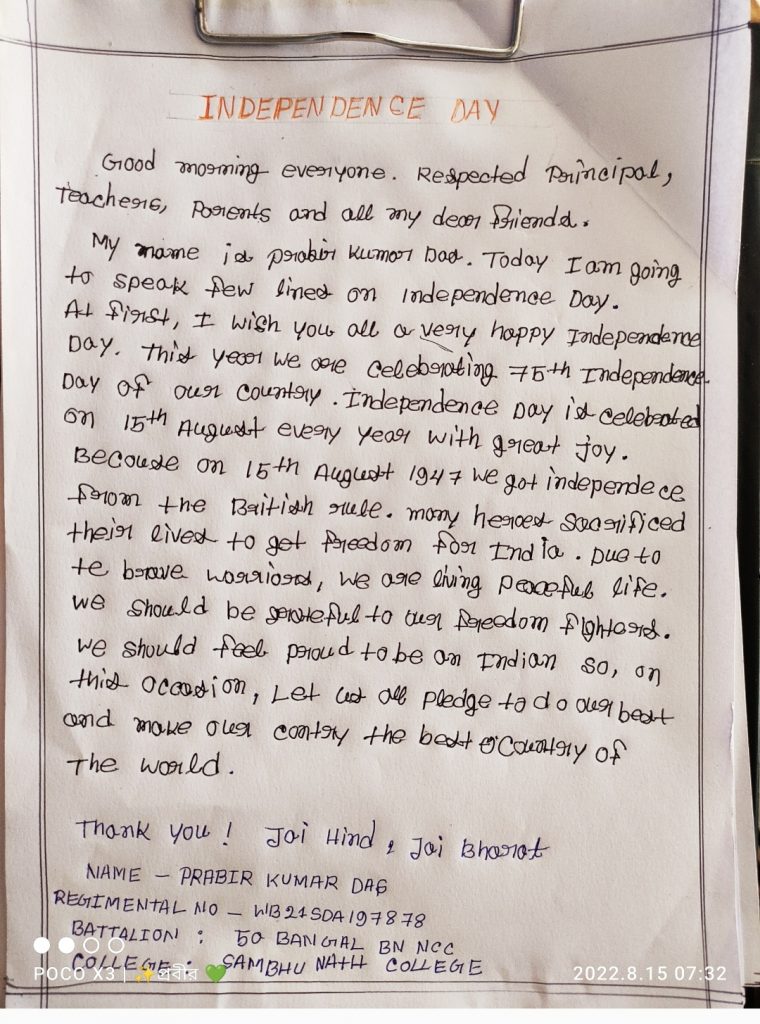 INDEPENDENCE DAY
Good morning everyone. Respected Principal,
Teachers, Parents and all my dear friends.
My name is prabir kumar Das. Today I am going
to speak few lines on independence Day.
At first, I wish you all a very happy Independence
Day. This year we are celebrating 75th Independence
Day of our country. Independence Day is celebrated
on 15th August every year with great joy.
Because on 15th August 1947 we got independece
from the British rule. many heroes sacrificed
their lives to get freedom for India. Due to
te brave warriors, we are living peaceful life.
we should be grateful to our freedom fighters.
we should feel proud to be an Indian so, on
this occasion, Let us all pledge to do our best
and make our contry the best country of
The world.
Thank you! Jai Hind, Jai Bharat
NAME - PRABIR KUMAR DAS
REGIMENTAL NO - WB21SDA197878
BATTALION : 50 BANGAL BN NCC
COLLEGE : SAMBHU NATH COLLEGE
POCO X3 | ✨প্রবীর 💚
2022.8.15 07:32